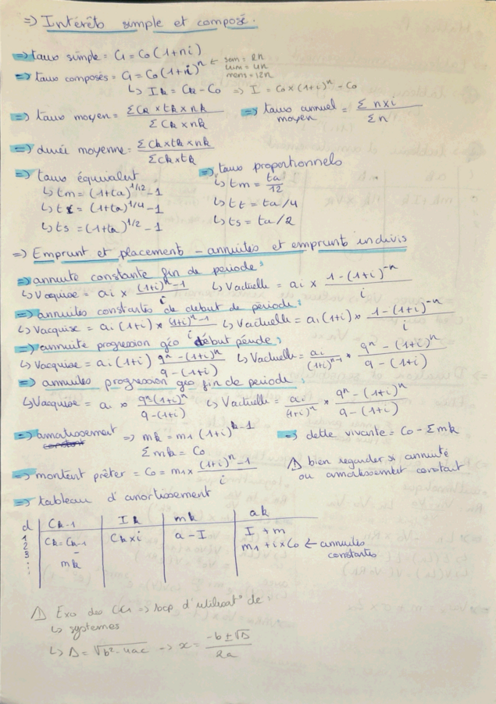 => Intérêts simple et composé.
=> taux simple = Cn = C0 (1+ni)
=> taux composés = Cn = C0 (1+i)^n ← sem = 2n
trim = 4n
mom = 12n
↳ Ik = Ck - C0 => I = C0 x (1+i)^n - C0
=> taux moyen = ΣCk x tk x nk / ΣCk x nk => taux annuel moyen = Σ n x i / Σ n
=> durée moyenne = ΣCk x tk x nk / ΣCk x tk
=> taux équivalent => taux proportionnels
↳ tm = (1+ta)^1/12 - 1 ↳ tm = ta / 12
↳ tt = (1+ta)^1/4 - 1 ↳ tt = ta/4
↳ ts = (1+ta)^1/2 - 1 ↳ ts = ta/2
=> Emprunt et placement - annuités et emprunts indivis
=> annuité constante fin de période :
↳ Vacquise = ai x (1+i)^n - 1 / i ↳ Vactuelle = ai x 1 - (1+i)^-n / i
=> annuités constantes de début de période :
↳ Vacquise = ai (1+i) x (1+i)^n - 1 / i ↳ Vactuelle = ai (1+i) x 1 - (1+i)^-n / i
=> annuité progression géo début période :
↳ Vacquise = ai (1+i) q^n - (1+i)^n / q - (1+i) ↳ Vactuelle = ai / (1+i)^n-1 x q^n - (1+i)^n / q - (1+i)
=> annuités progression géo fin de période :
↳ Vacquise = ai x q^n (1+i)^n / q - (1+i) ↳ Vactuelle = ai / (1+i)^n x q^n - (1+i)^n / q - (1+i)
=> amortissement => mk = m1 (1+i)^k-1 => dette vivante = C0 - Σmk
constant
Σmk = C0
⚠ bien regarder si annuité ou amortissement constant
=> montant prêter = C0 = m1 x (1+i)^n - 1 / i
=> tableau d'amortissement
d Ck-1 Ik mk ak
1 Ck = Ck-1 - mk Ck x i a - I I + m
2 m1 + i x C0 ← annuités constantes
3
⚠ Exo des
↳ systèmes
↳ Δ = √b² - 4ac -> x = -b ± √Δ / 2a